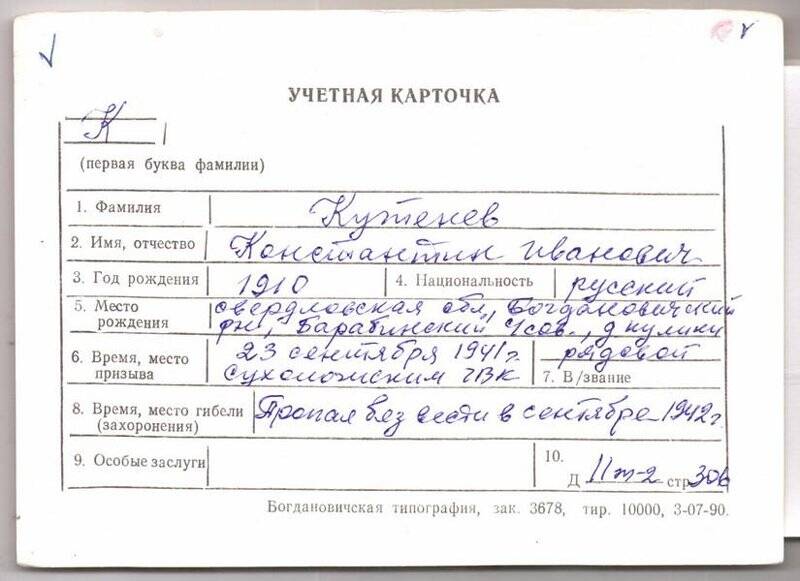 УЧЕТНАЯ КАРТОЧКА
К
(первая буква фамилии)
1. Фамилия Кутенев
2. Имя, отчество Константин Иванович
3. Год рождения 1910 4. Национальность русский
5. Место рождения свердловская обл., Богдановичский
рн, Барабинский с/сов., д кулики
6. Время, место призыва 23 сентября 1941г.
сухоложским РВК
рядовой
7. В/звание
8. Время, место гибели (захоронения) Пропал без вести в сентябре 1942г.
9. Особые заслуги
10.
Д IIт-2 стр 306
Богдановичская типография, зак. 3678, тир. 10000, 3-07-90.